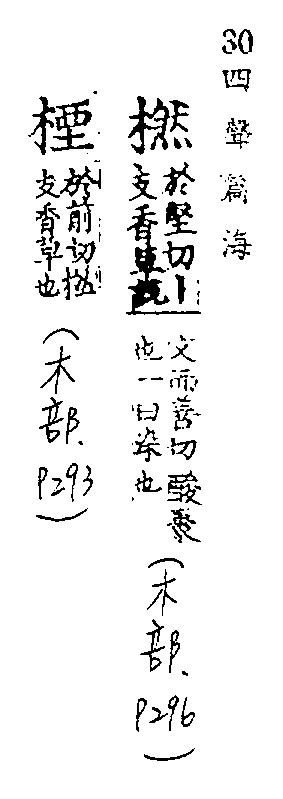 30四聲篇海
橪
於堅切丨
支香草說
文而善切酸棗
也一曰染也
(木部.P296)
於前切橪
支香草也
(木部.P293)